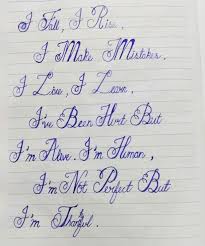 I Fall, I Rise,
I Make Mistakes,
I Live, I Learn,
I've Been Hurt But
I'm Alive. I'm Human,
I'm Not Perfect But
I'm Thankful.